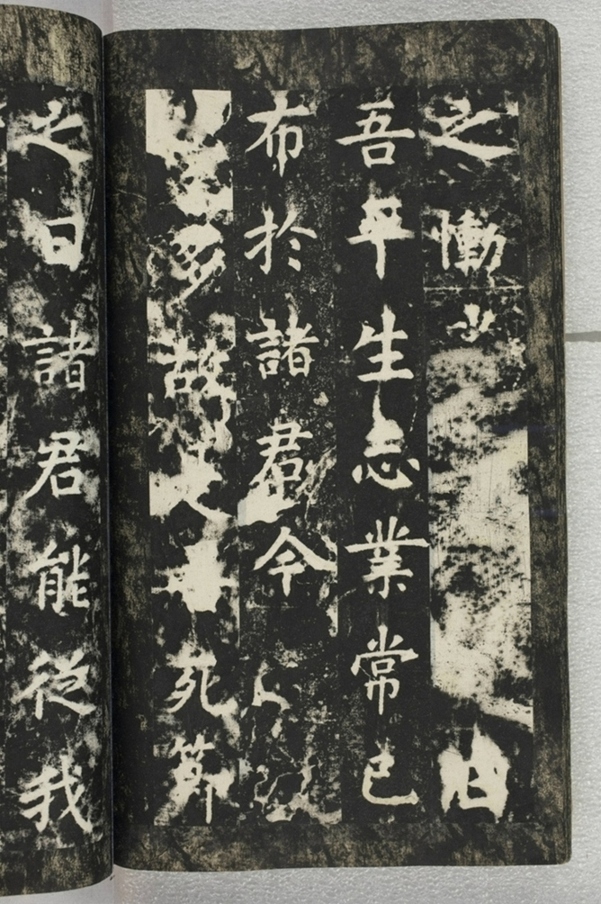 之慟
吾平生志業常已
布於諸君今
多故死節
之日諸君能從我